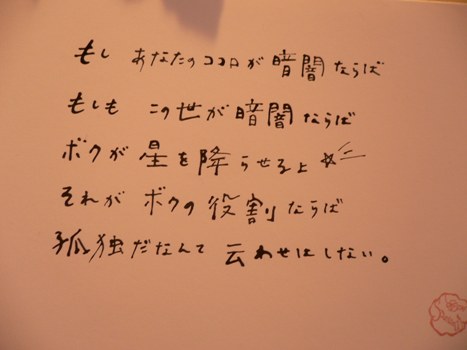 もし あなたのココロが暗闇ならば
もしも この世が暗闇ならば
ボクが 星を降らせるよ☆彡
それが ボクの役割ならば
孤独だなんて 云わせはしない。